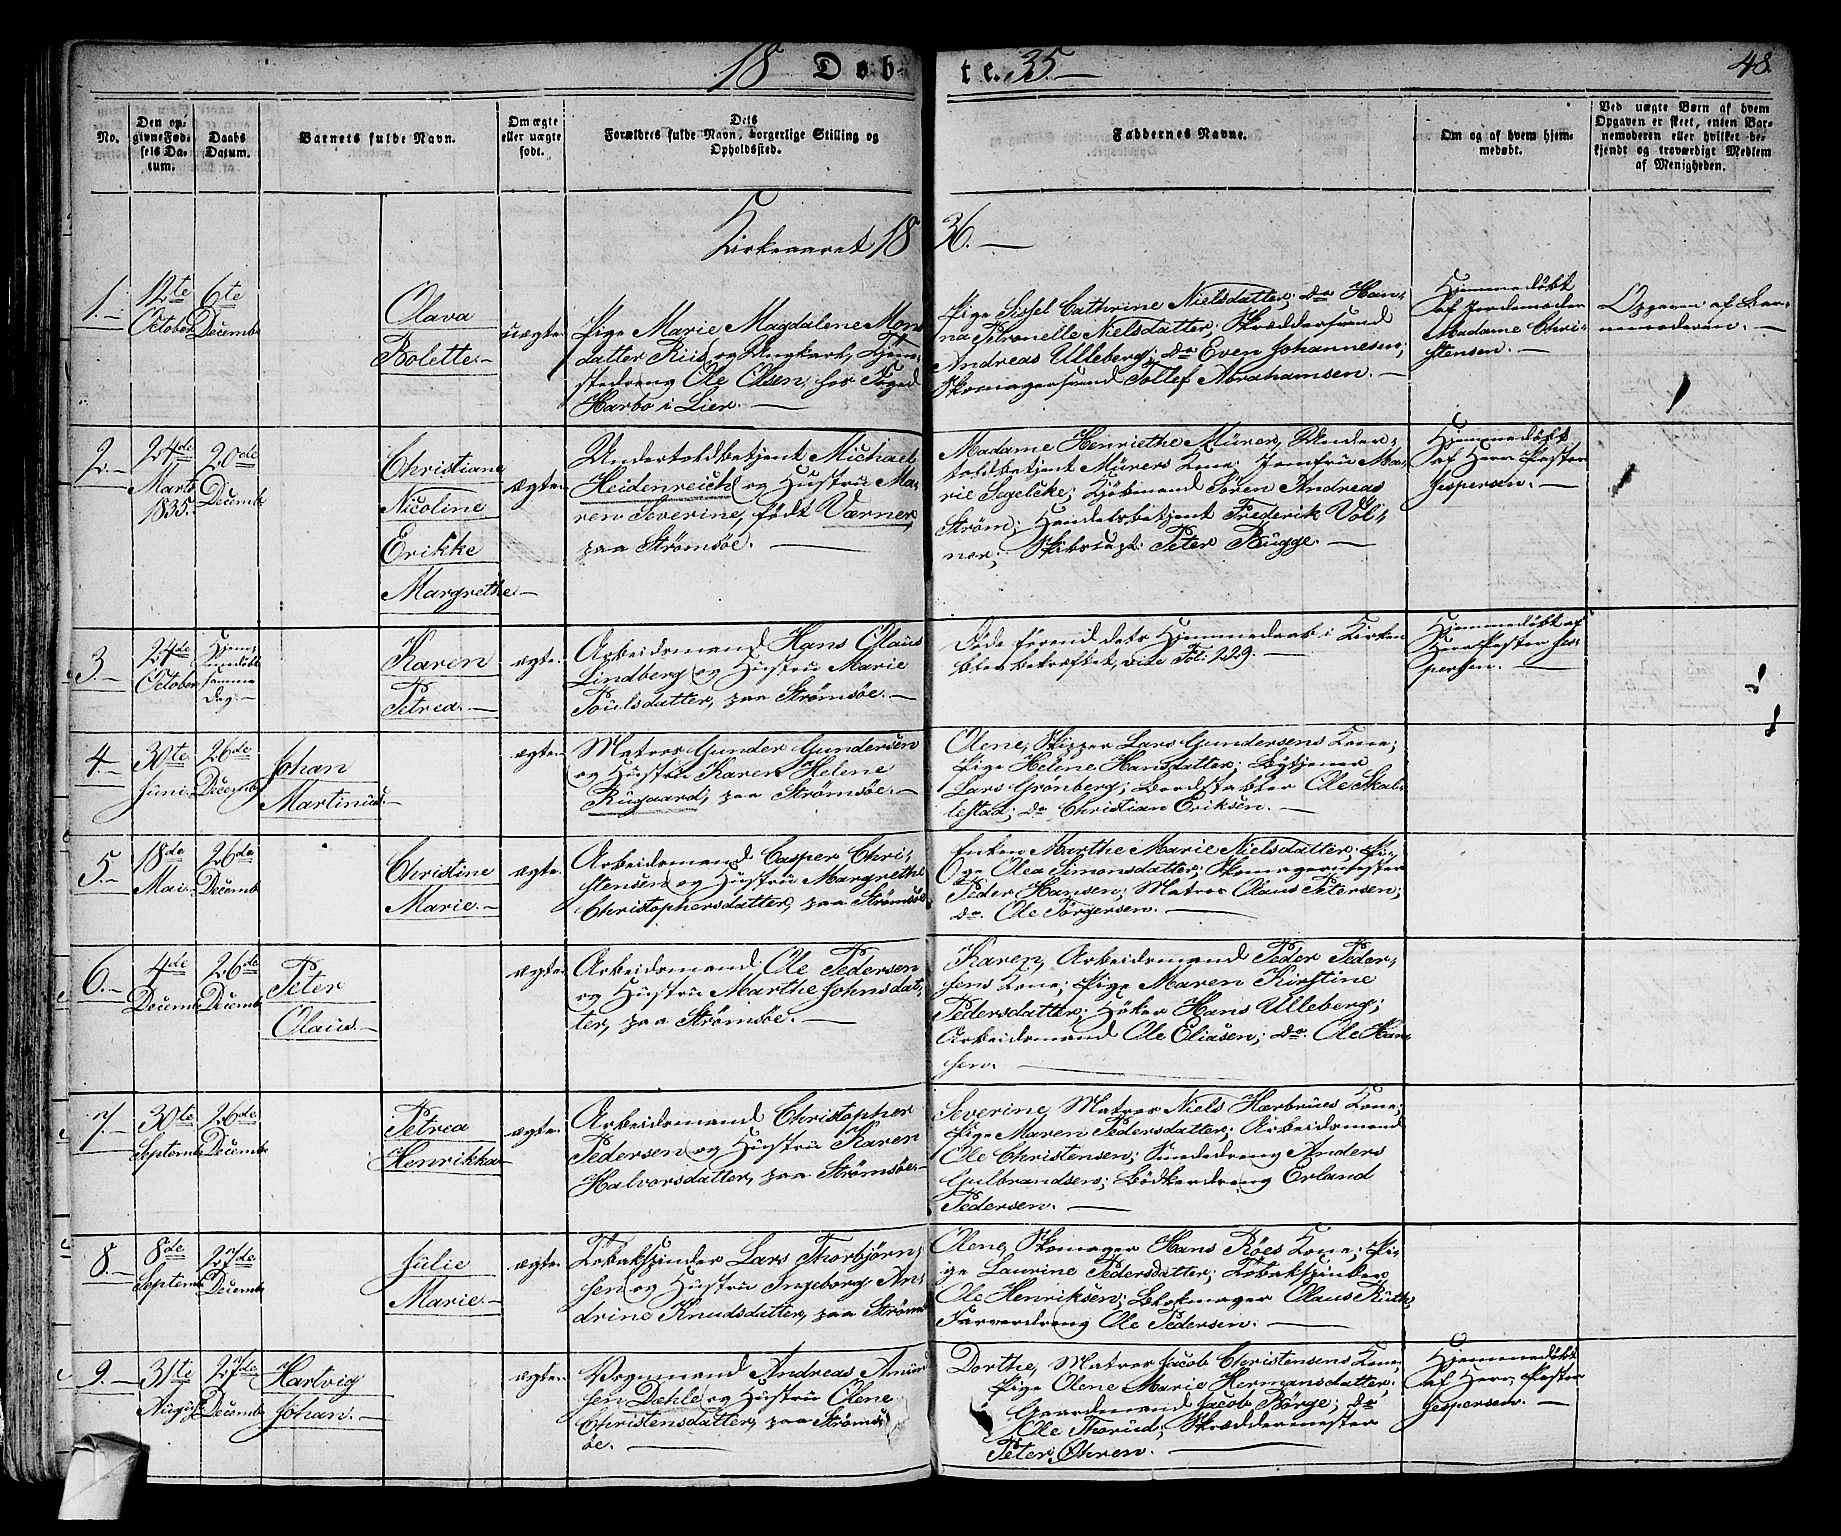 18 Døb-
te. 35
48.
No.
Den op-
givne Fød-
sels Da-
tum.
Daabs
Datum.
Barnets fulde Navn.
Om ægte
eller uægte
født.
Dets
Forældres fulde Navn, borgerlige Stilling og
Opholdssted.
Faddernes Navne.
Om og af hvem hjem-
medøbt.
Ved uægte Børn af hvem
Opgaven er skeet, enten Bar-
nemoderen eller hvilket be-
kjendt og troværdigt Medlem
af Menigheden.
Kirkeaaret 1836.
1.
12te
October
6te
Decembr
Olava
Bolette.
uægte
Pige Marie Magdalene Mons
datter Riis og Ungkarl, Tjene-
stedreng Ole Olsen, hos Foged
Harbo i Lier.
Pige Sissel Cathrine Nielsdatter; do Han-
na Petronelle Nielsdatter; Skræddersvend
Andreas Ulleberg; do Even Johannesen;
Skomagersvend Tollef Abrahamsen.
Hjemmedøbt
af Jordemoder
Madame Chri-
stensen.
Opgiven af Bar-
nemoderen.
2.
24de
Marts
1835.
20de
Decembr
Christiane
Nicoline
Erikke
Margrethe
ægte
Undertoldbetjent Michael
Heidenreich og Hustru Ma-
ren Severine, født Værner,
paa Strømsøe.
Madame Henriethe Mürer, Under-
toldbetjent Mürers Kone; Jomfru Ma-
rie Segelcke; Kjøbmand Søren Andreas
Strøm; Handelsbetjent Frederik Vol-
ner; Skibscapt: Peter Bugge.
Hjemmedøbt
af Herr Pastor
Jespersen.
3.
24de
October
Hjem-
medøbt
samme
Dag.
Karen
Petrea.
ægte
Arbeidsmand Hans Olaus
Lindberg og Hustru Marie
Poulsdatter, paa Strømsøe.
Døde førend dets Hjemmedaab i Kirken
blev bekræftet, vide Fol: 229.
Hjemmedøbt af
Herr Pastor Je-
spersen.
4.
30te
Juni
26de
Decembr
Johan
Martinus
ægte
Matros Gunder Gundersen
og Hustru Karen Helene
Rugaard, paa Strømsøe.
Olene, Skipper Lars Gundersens Kone;
Pige Helene Hansdatter; Bytjener
Lars Grønberg; Bordstabler Ole Skal-
lestad; do Christian Eriksen.
5.
18de
Mai
26de
Decembr
Christine
Marie.
ægte
Arbeidsmand Casper Chri-
stensen og Hustru Margrethe
Christophersdatter, paa Strømsøe
Enken Marthe Marie Nielsdatter; Pi-
ge Olea Simonsdatter; Skomagermester
Peder Hansen; Matros Olaus Petersen;
do Ole Törgersen.
6.
4de
Decembr
26de
Decembr
Peter
Olaus.
ægte
Arbeidsmand Ole Pedersen
og Hustru Marthe Johnsdat-
ter, paa Strømsøe.
Karen, Arbeidsmand Peder Peder-
sens Kone; Pige Maren Kirstine
Pedersdatter; Høker Hans Ulleberg;
Arbeidsmand Ole Eliasen; do Ole Han-
sen.
7.
30te
Septembr
26de
Decembr
Petrea
Henrikka
ægte
Arbeidsmand Christopher
Pedersen og Hustru Karen
Halvorsdatter, paa Strømsøe
Severine, Matros Niels Hærbrues Kone;
Pige Maren Pedersdatter; Arbeidsmand
Ole Christensen; Smededreng Anders
Gulbrandsen; Bødkerdreng Erland
Pedersen.
8.
8de
Septembr
27de
Decembr
Julie
Marie.
ægte
Tobakspinder Lars Thorbjørn-
sen og Hustru Ingeborg An-
drine Knudsdatter, paa Strømsøe
Olene, Skomager Hans Röes Kone; Pi-
ge Laurine Pedersdatter; Tobakspinder
Ole Henriksen; Blokmager Olaus Ruth,
Farverdreng Ole Pedersen.
9.
31te
August
27de
Decembr
Hartvig
Johan.
ægte
Vognmand Andreas Amund
sen Dæhle og Hustru Olene
Christensdatter, paa Strøms-
øe.
Dorthe, Matros Jacob Christensens Kone;
Pige Olene Marie Hermansdatter;
Gaardmand Jacob Börge; do
Ole Thorud; Skræddermester
Peter Ohren.
Hjemmedøbt
af Herr Pastor
Jespersen.